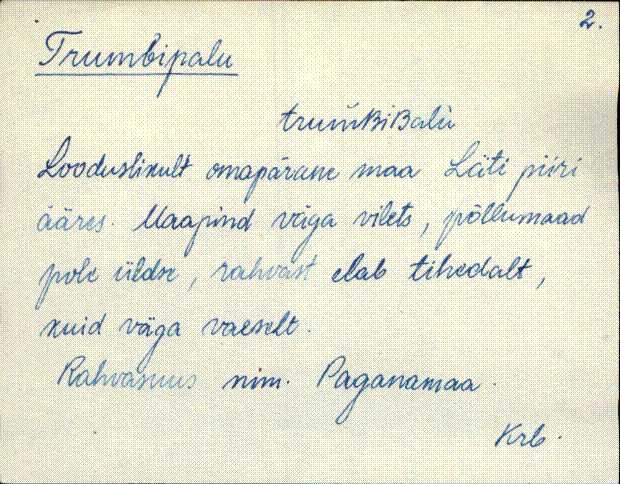 2.
Trumbipalu
trumʙiʙalu
Looduslikult omapärane maa Läti piiri
ääres. Maapind väga vilets, põllumaad
pole üldse, rahvast elab tihedalt,
kuid väga vaeselt.
Rahvasuus nim. Paganamaa.
Krb.